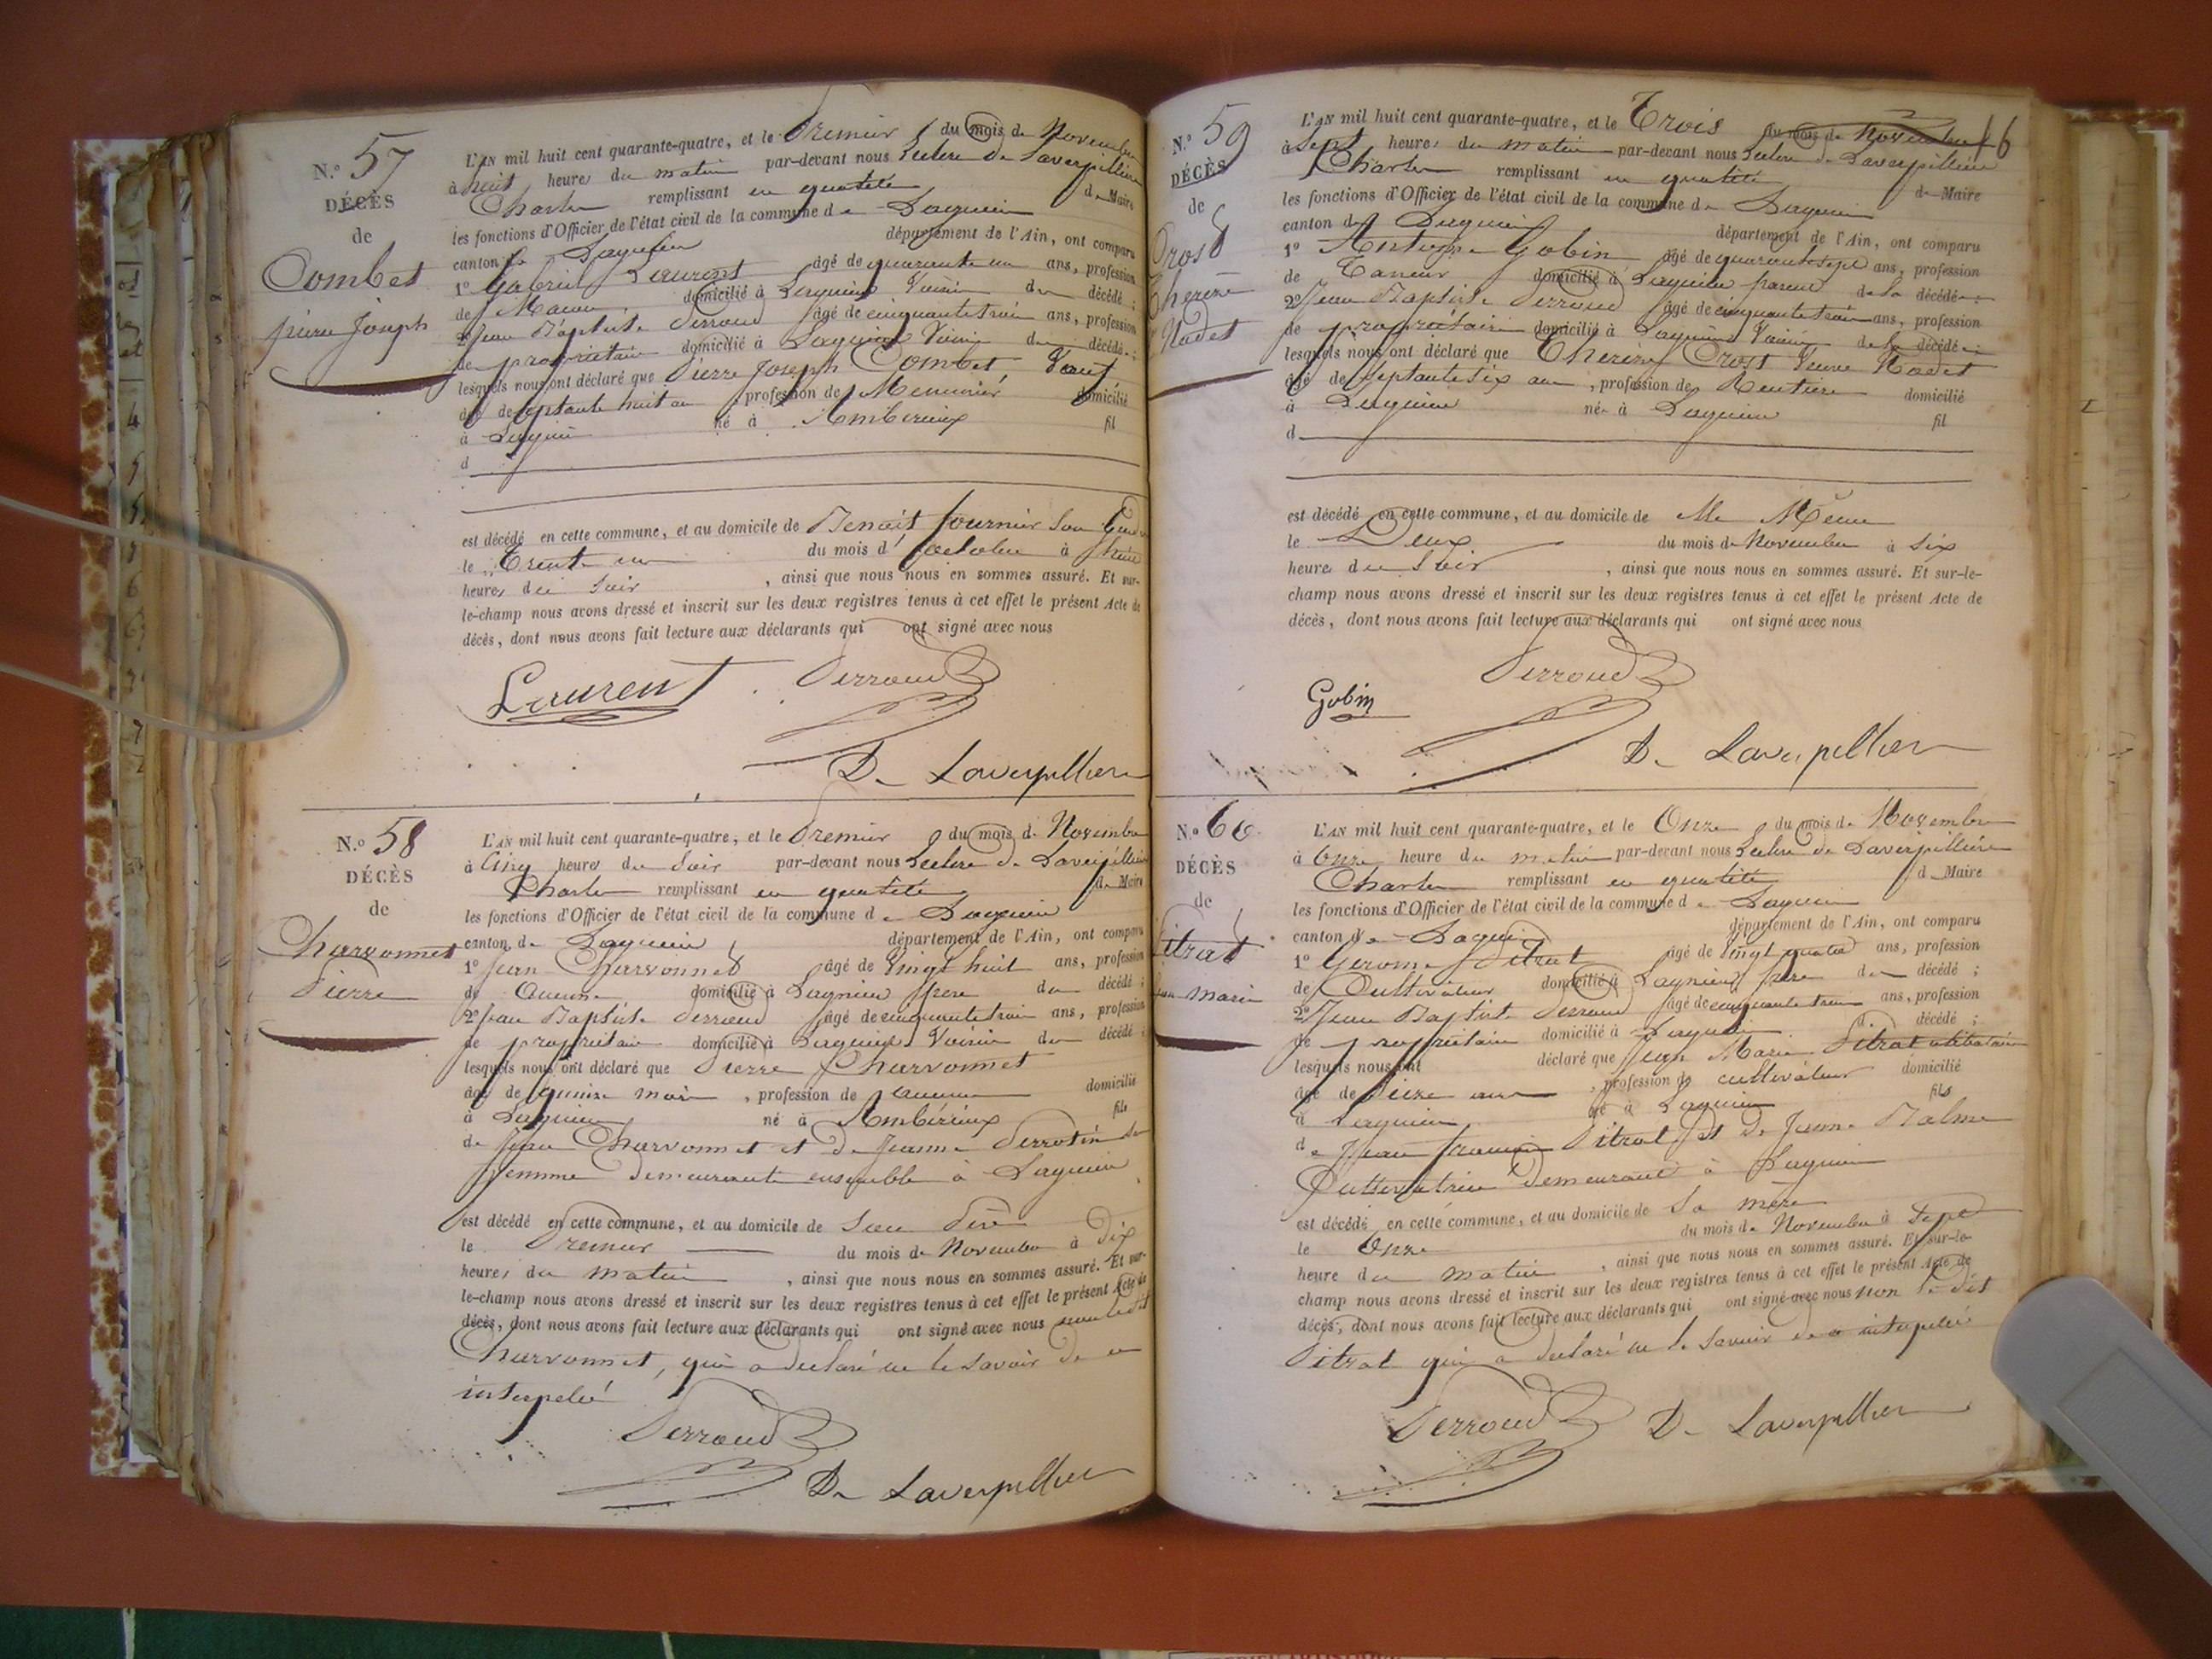 N.º 57
DÉCÈS
de
Combet
pierre Joseph
L'AN mil huit cent quarante-quatre, et le Premier du mois de Novembre
à huit heures du matin par-devant nous Leclerc De Laverpillière
Charles remplissant en qualité de Maire
les fonctions d'Officier de l'état civil de la commune de Lagnieu
canton de Lagnieu département de l'Ain, ont comparu
1º Gabriel Laurent âgé de quarante un ans, profession
de Maçon domicilié à Lagnieu Voisin du décédé ;
2º Jean Baptiste Perroud âgé de cinquante trois ans, profession
de propriétaire domicilié à Lagnieu Voisin du décédé ;
lesquels nous ont déclaré que Pierre Joseph Combet, Veuf
âgé de septante huit an , profession de domicilié
à Lagnieu né à Ambérieux fil
d
est décédé en cette commune, et au domicile de Benoit fournier Son
le Trente un du mois d'octobre à
heures du Soir , ainsi que nous nous en sommes assuré. Et sur-
le-champ nous avons dressé et inscrit sur les deux registres tenus à cet effet le présent Acte de
décès, dont nous avons fait lecture aux déclarants qui ont signé avec nous
Laurent Perroud
De Laverpilliere
N.º 58
DÉCÈS
de
Charvonnet
Pierre
L'AN mil huit cent quarante-quatre, et le Premier du mois de Novembre
à Cinq heures du Soir par-devant nous Leclerc De Laverpillière
Charles remplissant en qualité de Maire
les fonctions d'Officier de l'état civil de la commune de Lagnieu
canton de Lagnieu département de l'Ain, ont comparu
1º Jean Charvonnet âgé de Vingt huit ans, profession
de domicilié à Lagnieu père du décédé ;
2º Jean Baptiste Perroud âgé de cinquante trois ans, profession
de propriétaire domicilié à Lagnieu Voisin du décédé ;
lesquels nous ont déclaré que Pierre Charvonnet
âgé de quinze mois , profession de aucune domicilié
à Lagnieu né à Ambérieux fils
de Jean Charvonnet et de Jeanne Perrotin Sa
femme demeurants ensemble à Lagnieu
est décédé en cette commune, et au domicile de Son Père
le Premier du mois de Novembre à Dix
heures du matin , ainsi que nous nous en sommes assuré. Et sur-
le-champ nous avons dressé et inscrit sur les deux registres tenus à cet effet le présent Acte de
décès, dont nous avons fait lecture aux déclarants qui ont signé avec nous non ledit
Charvonnet, qui a declaré ne le savoir de ce
interpelé
Perroud
De Laverpilliere
N.º 59
DÉCÈS
de
Crost
Therèze
Nadet
L'AN mil huit cent quarante-quatre, et le Trois du mois de Novembre
à Sept heures du matin par-devant nous Leclerc De Laverpillière
Charles remplissant en qualité de Maire
les fonctions d'Officier de l'état civil de la commune de Lagnieu
canton de Lagnieu département de l'Ain, ont comparu
1º Antoine Gobin âgé de quarante sept ans, profession
de Taneur domicilié à Lagnieu parent de la décédée ;
2º Jean Baptiste Perroud âgé de cinquante trois ans, profession
de propriétaire domicilié à Lagnieu Voisin de la décédée ;
lesquels nous ont déclaré que Therèze Crost Veuve Nadet
âgé de septante six ans , profession de Rentière domicilié
à Lagnieu née à Lagnieu fil
d
est décédé en cette commune, et au domicile de Elle Même
le Deux du mois de Novembre à Six
heures du Soir , ainsi que nous nous en sommes assuré. Et sur-le-
champ nous avons dressé et inscrit sur les deux registres tenus à cet effet le présent Acte de
décès, dont nous avons fait lecture aux déclarants qui ont signé avec nous
Gobin Perroud
De Laverpilliere
N.º 60
DÉCÈS
de
Pitrat
Jean Marie
L'AN mil huit cent quarante-quatre, et le Onze du mois de Novembre
à Onze heure du matin par-devant nous Leclerc De Laverpillière
Charles remplissant en qualité de Maire
les fonctions d'Officier de l'état civil de la commune de Lagnieu
canton de Lagnieu département de l'Ain, ont comparu
1º Gerome Pitrat âgé de Vingt quatre ans, profession
de Cultivateur domicilié à Lagnieu frère du décédé ;
2º Jean Baptiste Perroud âgé de cinquante trois ans, profession
de propriétaire domicilié à Lagnieu d. décédé ;
lesquels nous ont déclaré que Jean Marie Pitrat célibataire
âgé de Seize ans , profession de cultivateur domicilié
à Lagnieu né à Lagnieu fils
de Jean francois Pitrat et De Jeanne Balme
Cultivatrice demeurant à Lagnieu
est décédé en cette commune, et au domicile de Sa mère
le Onze du mois de Novembre à Sept
heure du matin , ainsi que nous nous en sommes assuré. Et sur-le-
champ nous avons dressé et inscrit sur les deux registres tenus à cet effet le présent Acte de
décès, dont nous avons fait lecture aux déclarants qui ont signé avec nous non le dit
Pitrat qui a declaré ne le savoir de ce interpelé
Perroud De Laverpilliere